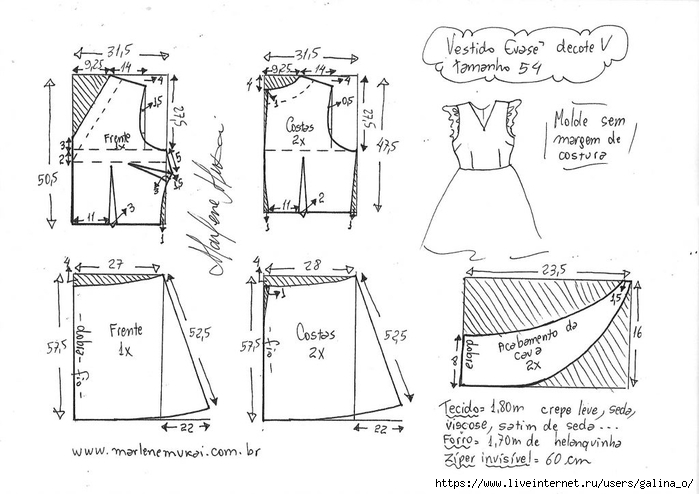 Vestido Evasê decote V
tamanho 54
31,5
9,25
14
4
1,5
27,5
Frente
1x
3
2
50,5
1,5
1,5
3
11
3
1
31,5
9,25
14
4
4
1
0,5
27,5
Costas
2x
47,5
11
2
1
1
Marlene Mukai
Molde sem
margem de
costura
4
27
57,5
dobra - fio
Frente
1x
52,5
22
4
28
1
57,5
fio
Costas
2x
52,5
22
23,5
1,5
16
8
dobra
Acabamento da
cava
2x
Tecido = 1,80m crepe leve, seda,
viscose, satim de seda...
Forro = 1,70m de helanquinha
Zíper invisível = 60 cm
www.marlenemukai.com.br
https://www.liveinternet.ru/users/galina_o/